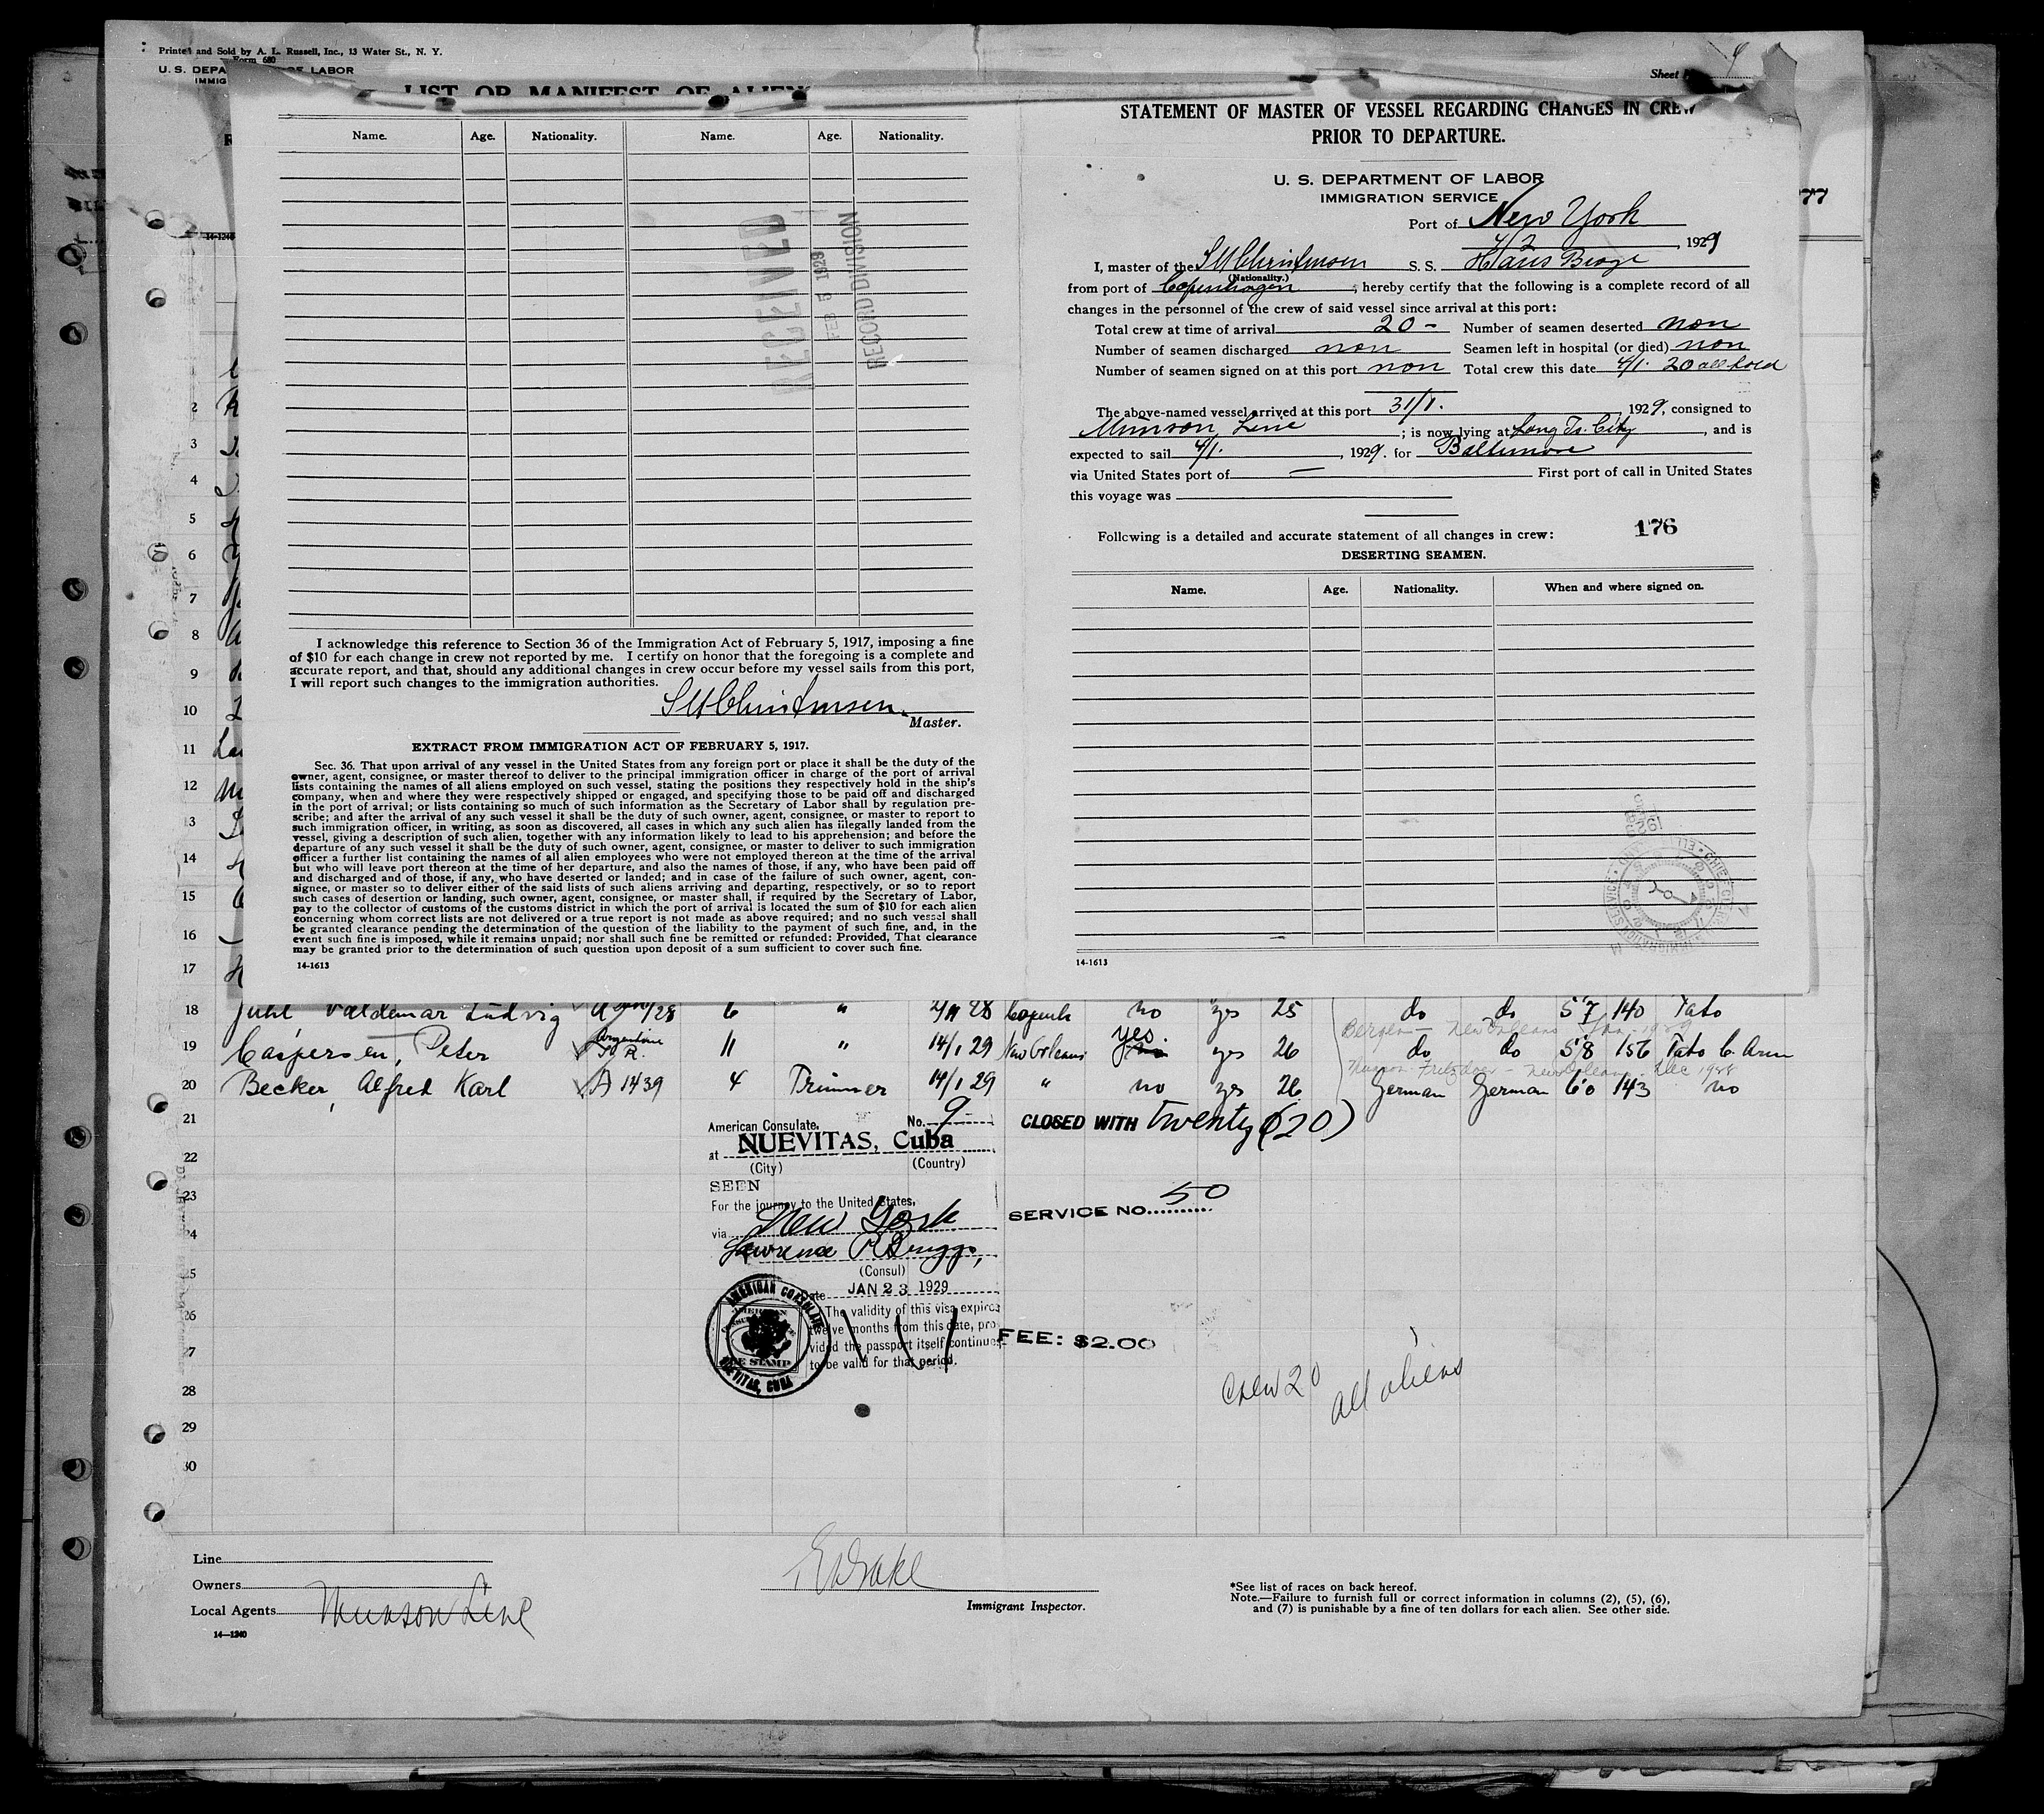 Printed and Sold by A. L. Russell, Inc., 13 Water St., N. Y.
Form 680
U. S. DEPA OF LABOR
IMMIG
LIST OR MANIFEST OF ALIEN
Sheet
9
14-1240
77
Name. Age. Nationality. Name. Age. Nationality.
RECEIVED
FEB 5 1929
RECORD DIVISION
I acknowledge this reference to Section 36 of the Immigration Act of February 5, 1917, imposing a fine
of $10 for each change in crew not reported by me. I certify on honor that the foregoing is a complete and
accurate report, and that, should any additional changes in crew occur before my vessel sails from this port,
I will report such changes to the immigration authorities.
Christensen
Master.
EXTRACT FROM IMMIGRATION ACT OF FEBRUARY 5, 1917.
Sec. 36. That upon arrival of any vessel in the United States from any foreign port or place it shall be the duty of the
owner, agent, consignee, or master thereof to deliver to the principal immigration officer in charge of the port of arrival
lists containing the names of all aliens employed on such vessel, stating the positions they respectively hold in the ship's
company, when and where they were respectively shipped or engaged, and specifying those to be paid off and discharged
in the port of arrival; or lists containing so much of such information as the Secretary of Labor shall by regulation pre-
scribe; and after the arrival of any such vessel it shall be the duty of such owner, agent, consignee, or master to report to
such immigration officer, in writing, as soon as discovered, all cases in which any such alien has illegally landed from the
vessel, giving a description of such alien, together with any information likely to lead to his apprehension; and before the
departure of any such vessel it shall be the duty of such owner, agent, consignee, or master to deliver to such immigration
officer a further list containing the names of all alien employees who were not employed thereon at the time of the arrival
but who will leave port thereon at the time of her departure, and also the names of those, if any, who have been paid off
and discharged and of those, if any, who have deserted or landed; and in case of the failure of such owner, agent, con-
signee, or master so to deliver either of the said lists of such aliens arriving and departing, respectively, or so to report
such cases of desertion or landing, such owner, agent, consignee, or master shall, if required by the Secretary of Labor,
pay to the collector of customs of the customs district in which the port of arrival is located the sum of $10 for each alien
concerning whom correct lists are not delivered or a true report is not made as above required; and no such vessel shall
be granted clearance pending the determination of the question of the liability to the payment of such fine, and, in the
event such fine is imposed, while it remains unpaid; nor shall such fine be remitted or refunded: Provided, That clearance
may be granted prior to the determination of such question upon deposit of a sum sufficient to cover such fine.
14-1613
STATEMENT OF MASTER OF VESSEL REGARDING CHANGES IN CREW
PRIOR TO DEPARTURE.
U. S. DEPARTMENT OF LABOR
IMMIGRATION SERVICE
Port of New York
4/2, 1929
I, master of the Christensen S. S. Hans Broge
(Nationality.)
from port of Copenhagen; hereby certify that the following is a complete record of all
changes in the personnel of the crew of said vessel since arrival at this port:
Total crew at time of arrival 20 - Number of seamen deserted non
Number of seamen discharged non Seamen left in hospital (or died) non
Number of seamen signed on at this port non Total crew this date 4/1. 20 all told
The above-named vessel arrived at this port 31/1. 1929, consigned to
Munson Line; is now lying at Long Is. City, and is
expected to sail 4/1., 1929. for Baltimore
via United States port of — First port of call in United States
this voyage was
176
Following is a detailed and accurate statement of all changes in crew:
DESERTING SEAMEN.
Name. Age. Nationality. When and where signed on.
14-1613
2
3
4
5
6
7
8
9
10
11
12
13
14
15
16
17
18 Juhl, Valdemar Ludvig 6 " 28 Copenh no yes 25 do do 5'7 140 Tato
Bergen — New Orleans Jan - 1929
19 Caspersen, Peter Argentine 11 " 14/1 29 New Orleans yes. no yes 26 do do 5'8 156 Tato b. Arm
New Orleans - Dec 1928
20 Becker, Alfred Karl A 1439 4 Trimmer 14/1 29 " no yes 26 German German 6'0 143 no
21
22
23
24
25
26
27
28
29
30
American Consulate. No. 9
at NUEVITAS, Cuba
(City) (Country)
SEEN
For the journey to the United States,
via New York
Lawrence P. Briggs,
(Consul)
Date JAN 23 1929
The validity of this visa expires
twelve months from this date, pro-
vided the passport itself continues
to be valid for that period.
AMERICAN CONSULATE
NUEVITAS, CUBA
FEE STAMP
CLOSED WITH twenty (20)
SERVICE NO. 50
FEE: $2.00
Crew 20
all aliens
Line
Owners
Local Agents Munson Line
14—1240
Drake
Immigrant Inspector.
*See list of races on back hereof.
Note.—Failure to furnish full or correct information in columns (2), (5), (6),
and (7) is punishable by a fine of ten dollars for each alien. See other side.